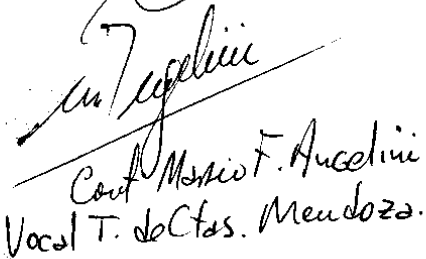 Cont Mario F. Angelini
Vocal T. de Ctas. Mendoza.